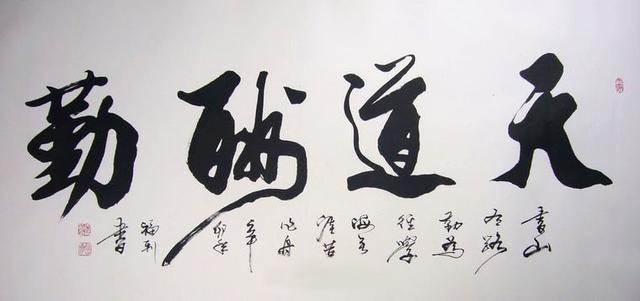 天道酬勤
書山
有路
勤為
徑學
海無
涯苦
作舟
書